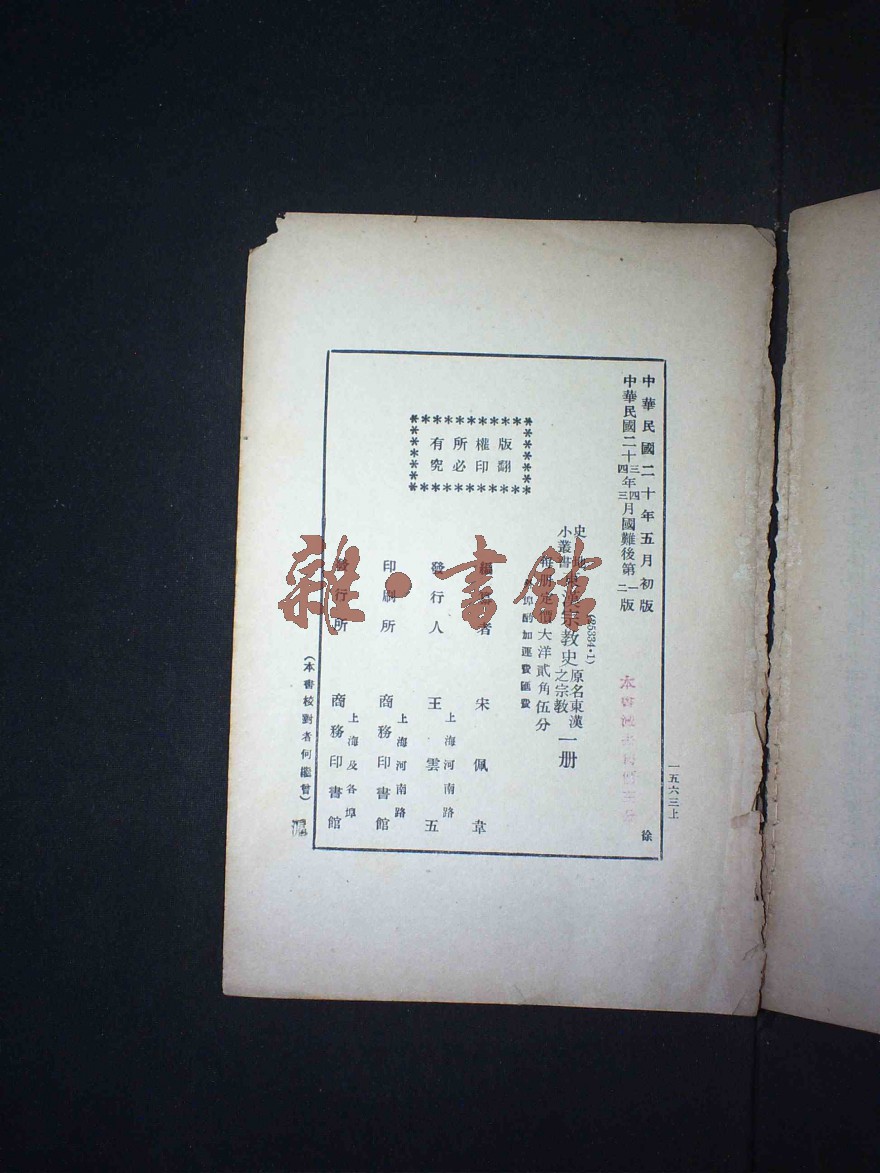 中華民國二十年五月初版
中華民國二十三四年四三月國難後第一二版
(65334·1)
史地小叢書 東漢宗教史 原名東漢之宗教 一册
每册定價大洋貳角伍分
外埠酌加運費匯費
編者 宋佩韋
發行人 王雲五
上海河南路
印刷所 商務印書館
上海河南路
發行所 商務印書館
上海及各埠
版權所有
翻印必究
(本書校對者何繼曾)
一五六三上
徐
雜·書館